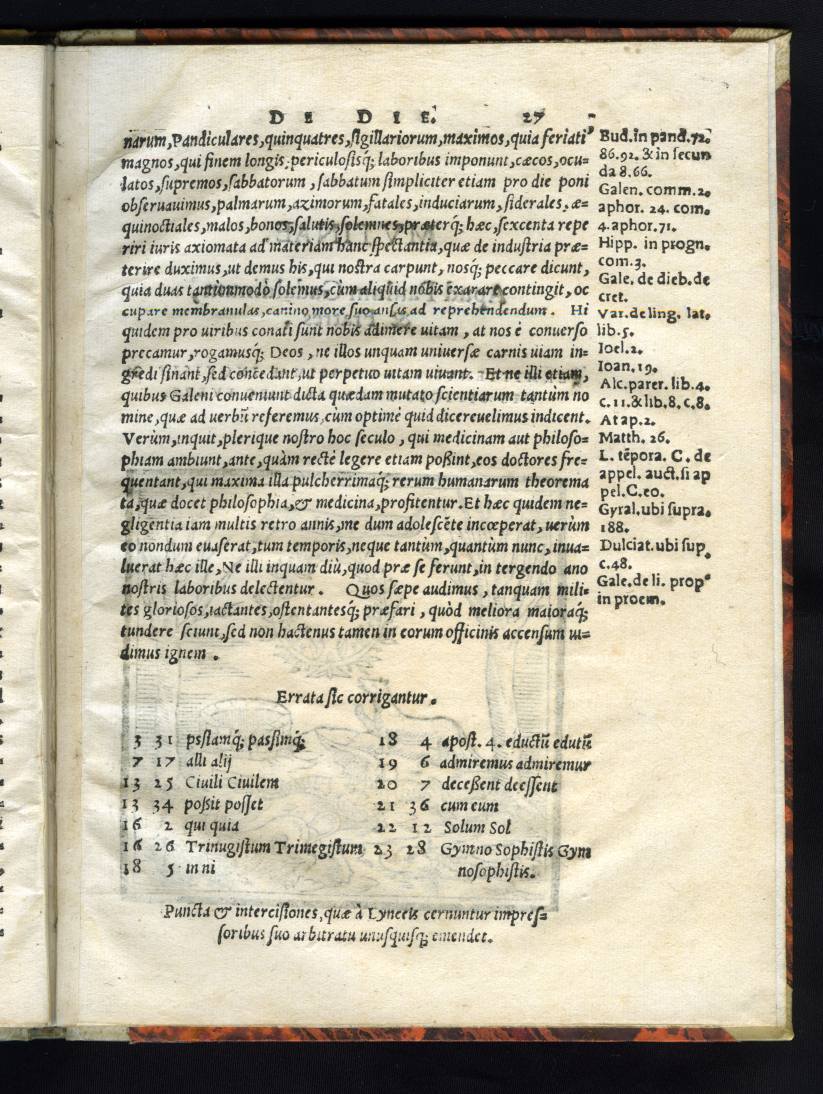 DE DIE. 27
narum, Pandiculares, quinquatres, sigillariorum, maximos, quia feriati
magnos, qui finem longis, periculosisq́; laboribus imponunt, cæcos, ocu=
latos, supremos, sabbatorum, sabbatum simpliciter etiam pro die poni
obseruauimus, palmarum, azimorum, fatales, induciarum, siderales, æ=
quinoctiales, malos, bonos, salutis, solemnes, præterq́; hæc, sexcenta repe
riri iuris axiomata ad materiam hanc spectantia, quæ de industria præ=
terire duximus, ut demus his, qui nostra carpunt, nosq́; peccare dicunt,
quia duas tantionmodò solemus, cùm aliquid nobis exarare contingit, oc
cupare membranulas, canino more suo ansus ad reprehendendum. Hi
quidem pro uiribus conati sunt nobis adimere uitam, at nos è conuerso
precamur, rogamusq́; Deos, ne illos unquam uniuersæ carnis uiam in=
gredi sinant, sed concedant, ut perpetuo uitam uiuant. Et ne illi etiam,
quibus Galeni conueniunt dicta quædam mutato scientiarum tantùm no
mine, quæ ad uerbū referemus, cùm optimè quid dicereuelimus indicent.
Verùm, inquit, plerique nostro hoc seculo, qui medicinam aut philoso=
phiam ambiunt, ante, quàm rectè legere etiam poßint, eos doctores fre=
quentant, qui maxima illa pulcherrimaq́; rerum humanarum theorema
ta, quæ docet philosophia, & medicina, profitentur. Et hæc quidem ne=
gligentia iam multis retro annis, me dum adolescēte incœperat, uerùm
eo nondum euaserat, tum temporis, neque tantùm, quantùm nunc, inua=
luerat hæc ille, Ne illi inquam diù, quod præ se ferunt, in tergendo ano
nostris laboribus delectentur. Quos sæpe audimus, tanquam mili=
tes gloriosos, iactantes, ostentantesq́; præfari, quòd meliora maioraq́;
tundere sciunt, sed non hactenus tamen in eorum officinis accensum ui=
dimus ignem.
Bud. in pand. 72.
86. 92. & in secun
da 8. 66.
Galen. comm. 2.
aphor. 24. com.
4. aphor. 71.
Hipp. in progn.
com. 3.
Gale. de dieb. de
cret.
Var. de ling. lat.
lib. 5.
Ioel. 2.
Ioan. 19.
Alc. parer. lib. 4.
c. 11. & lib. 8. c. 8.
At ap. 2.
Matth. 26.
L. tēpora. C. de
appel. auct. si ap
pel. C. eo.
Gyral. ubi supra.
188.
Dulciat. ubi sup.
c. 48.
Gale. de li. prop.
in proem.
Errata sic corrigantur.
3 31 psslamq́; passimq́;
7 17 alli alij
13 25 Ciuili Ciuilem
13 34 poßit posset
16 2 qui quia
16 26 Trinugistum Trimegistum
18 5 in ni
18 4 apost. 4. eductū edutū
19 6 admiremus admiremur
20 7 deceßent deessent
21 36 cum eum
22 12 Solum Sol
23 28 Gymno Sophistis Gym
nosophistis.
Puncta & intercisiones, quæ à Lynceis cernuntur impres=
soribus suo arbitratu unusquisq́; emendet.